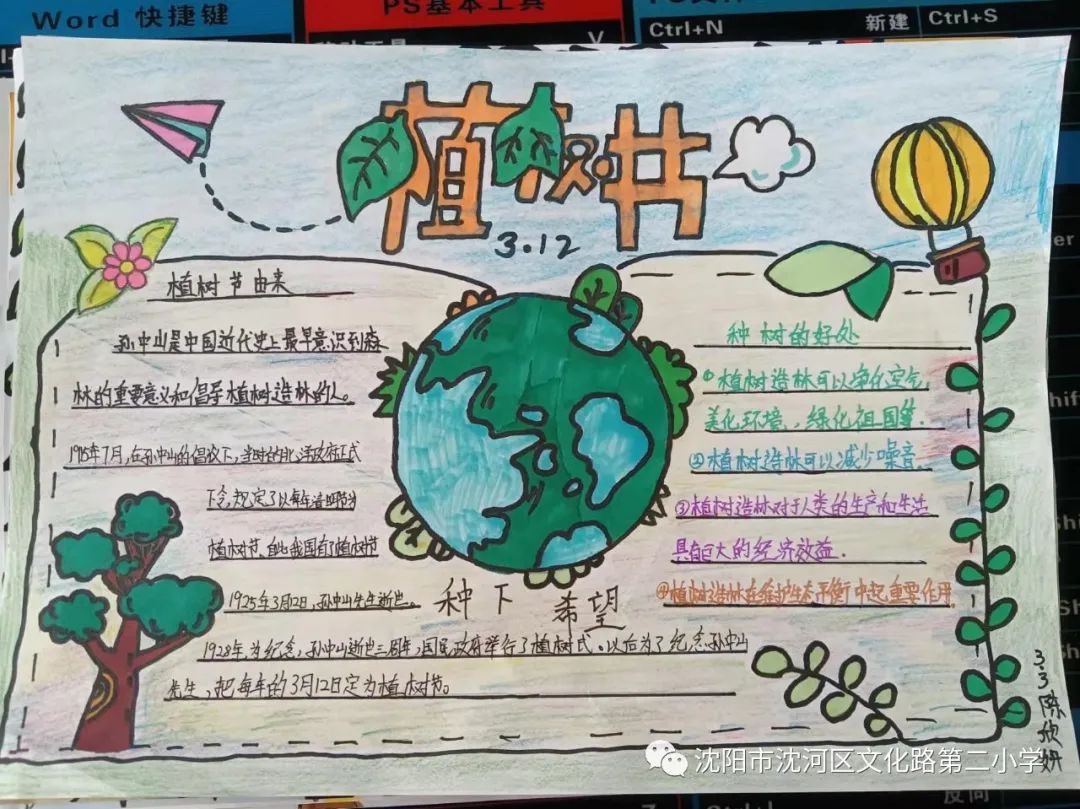 Word 快捷键
PS基本工具
Ctrl+N
新建
Ctrl+S
植树节
3.12
植树节由来
孙中山是中国近代史上最早意识到森
林的重要意义和倡导植树造林的人。
1915年7月,在孙中山的倡议下,当时的北洋政府正式
下令,规定了以每年清明节为
植树节,自此我国有了植树节
1925年3月12日,孙中山先生逝世。
1928年,为纪念,孙中山逝世三周年,国民政府举行了植树式。以后为了纪念孙中山
先生,把每年的3月12日定为植树节。
种下 希望
种树的好处
①植树造林可以净化空气,
美化环境,绿化祖国等.
②植树造林可以减少噪音.
③植树造林对于人类的生产和生活
具有巨大的经济效益.
④植树造林在维护生态平衡中起重要作用.
3.3 陈欣妍
沈阳市沈河区文化路第二小学